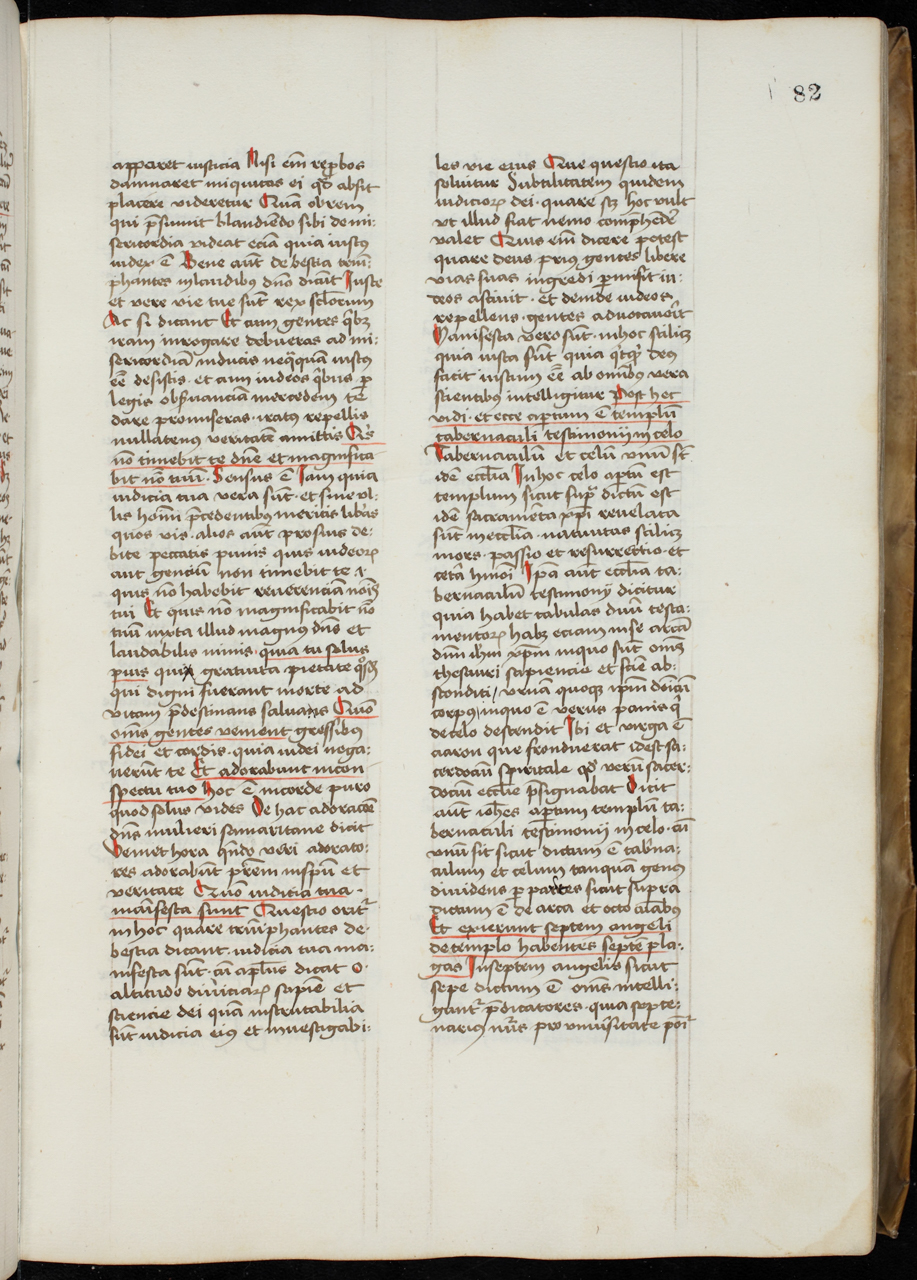 82
apparet iusticia Nisi em̄ rep̱bos
damnaret iniquitas ei qd̄ absit
placere videretur Quā obrem
qui p̄sumit blandiēdo sibi de mi-
sericordia videat eciā quia iustꝰ
iudex ē Bene aūt de bestia triū-
phantes in laudibꝰ dn̄o dicūt Iuste
et vere vie tue sūt rex sc̄lorum
Ac si dicant Et cum gentes qͥbꝫ
iram inrogare debueras ad mi-
sericordiā inducis neq̄quā iustꝰ
eē̄ desistis · et cum iudeos qͥbus p̱
legis obẛuanciam mercedem te
dare promiseras · iratꝰ repellis
nullatenꝰ veritatē amittis Qͥs
nō timebit te dn̄e et magnifica
bit nō tuū · Sensus ē Iam quia
iudicia tua vera sūt · et sine vl-
lis hom̄ p̄cedentibus meritis libās
quos vis · alios aūt prosius de-
bite peccatis punis quis iudeoꝝ
aut genciū non timebit te ·
quis nō habebit reuerenciam noīs
tui Et quis nō magnificabit nō
tuū iuxta illud magnꝰ dn̄s et
laudabilis nimis · quia tu solus
pius quia gratuita pietate qͦsdā
qui digni fuerant morte ad
vitam p̄destinans saluans Qm̄
om̄s gentes venient gressibꝰ
fidei et cordis · quia iudei nega-
uerūt te Et adorabunt in con
spectu tuo Hoc ē in corde puro
quod solus vides De hac adoracōe
dn̄s mulieri samaritane dicit
Veniet hora qn̄do veri adorato-
res adorabūt pr̄em in sp̄u et
veritate Qm̄ iudicia tua ·
manifesta sunt Questio oritͬ
in hoc quare triūphantes de
bestia dicant · iudicia tua ma-
nifesta sūt · cū ap̄lus dicat O ·
altitudo diuiciaꝝ sapiēcie et
sciencie dei quā inscrutabilia
sūt iudicia eiꝰ et inuestigabi-
les vie eius Que questio ita
soluitur Subtilitatem quidem
iudicioꝝ dei · quare sꝫ hoc vult
vt illud fiat nemo comp̄hēdē
valet Quis em̄ dicere potest
quare deus priꝰ gentes libere
vias suas ingredi p̱misit iu-
deos asciuit · Et deinde iudeos
repellens · gentes aduocauerit
Manifesta vero sūt · in hoc scilicꝫ
quia iusta sūt quia qͥcqͥd deꝰ
facit iustum eē̄ ab omībꝰ vera
scientibus intelligitur Post hec
vidi · et ecce apertum ē templū
tabernaculi testimonii in celo
Tabernaculū et celū vnū sūt
idē ecc̄lia In hoc celo ap̱tū est
templum sicut supͣ dictū est
idē sacramēta xp̄i reuelata
sūt in ecc̄lia · natiuitas scilicꝫ
mors · passio et resurrectio · et
cetā hm̄oi Ip̄a aūt ecc̄lia ta-
bernaculū testimonÿ dicitur
quia habet tabulas duū testa-
mentoꝝ habꝫ eciam in se arcā
dūm ih̄m xp̄m in quo sūt om̄s
thesauri sapiencie et sciē ab-
sconditi / vrna quoqꝫ ip̄m dn̄icū
corpꝰ in quo ē verus panis qͥ
de celo descendit Ibi et virga ē
aaron que fronduerat id est sa-
cerdociū spirituale qd̄ verū sacer-
dociū ecc̄lie p̄signabat Dicit
aūt ioh̄es ap̱tum templū ta-
bernaculi testimonii in celo · cū
vnū sit sicut dictum ē tab̄na-
culum et celum tanquā genus
diuidens p̱ partes sicut supra
dictum ē de arca et octo aīabꝰ
Et exierunt septem angeli
de templo habentes septē pla-
gas In septem angelis sicut
sepe dictum ē om̄s intelli-
gantͬ p̄dicatores · quia septe-
nariꝰ nūs pro vniūsitate poītͬ